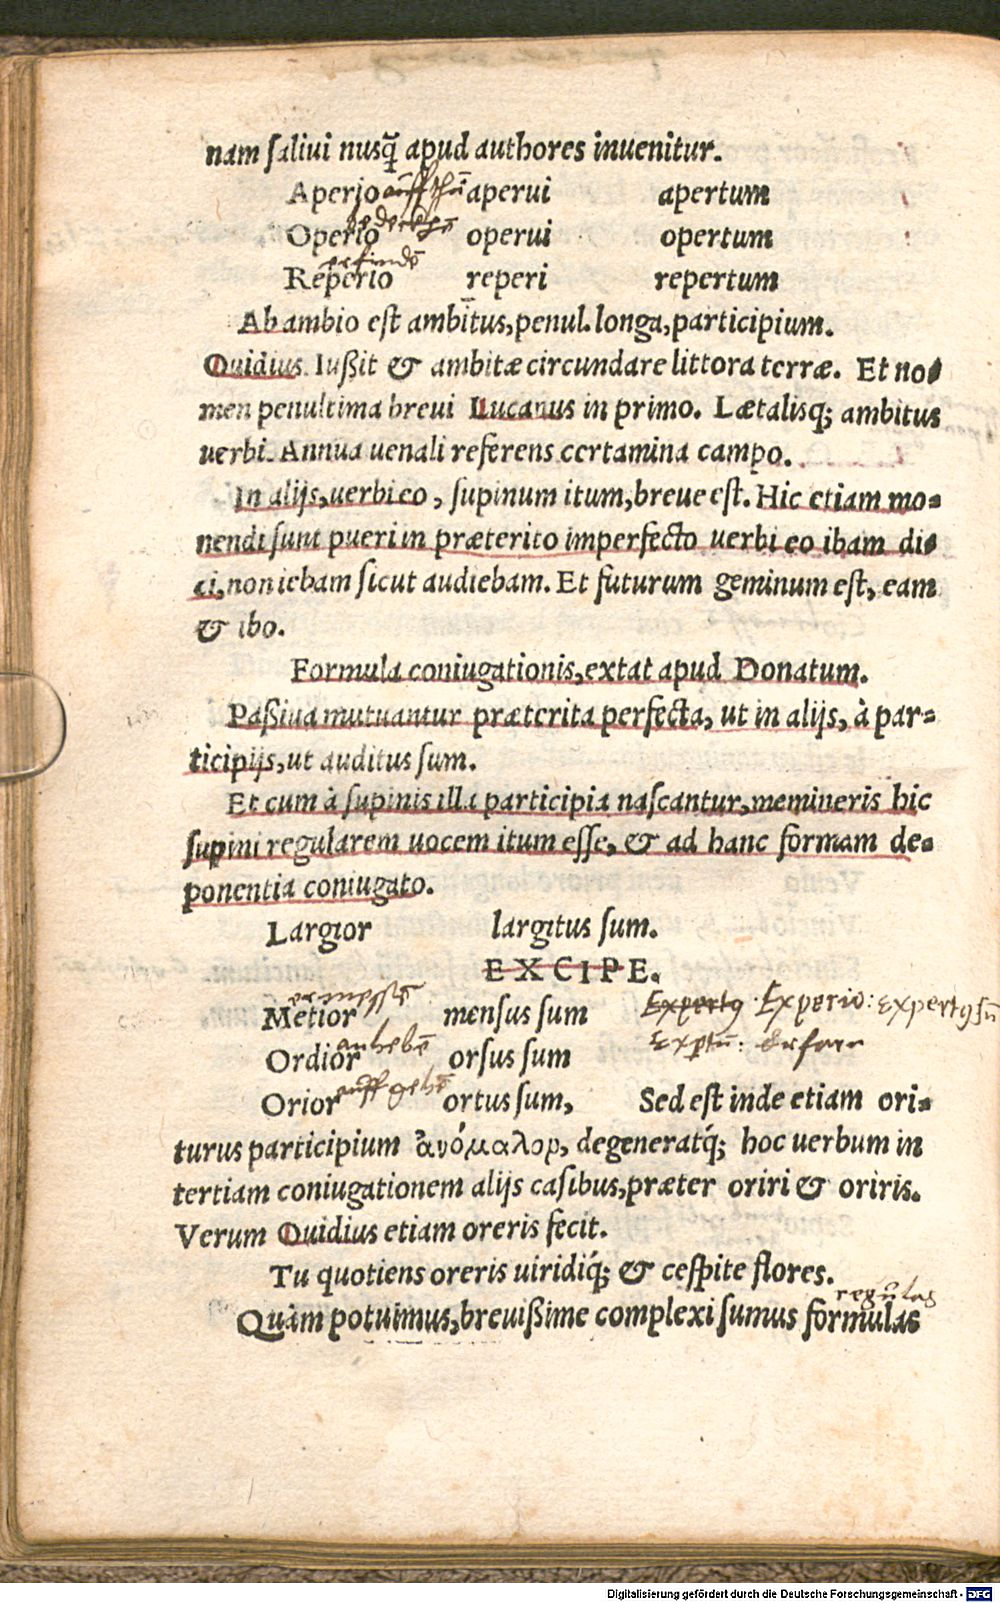 nam saliui nusq̃ apud authores inuenitur.
Aperio auffthũ aperui apertum
Operio bedeckhẽ operui opertum
Reperio erfindẽ reperi repertum
Ab ambio est ambitus, penul. longa, participium.
Ouidius. Iußit & ambitæ circundare littora terræ. Et no-
men penultima breui Lucanus in primo. Lætalisq; ambitus
uerbi. Annua uenali referens certamina campo.
In alijs, uerbi eo, supinum itum, breue est. Hic etiam mo-
nendi sunt pueri in præterito imperfecto uerbi eo ibam di-
ci, non iebam sicut audiebam. Et futurum geminum est, eam
& ibo.
Formula coniugationis, extat apud Donatum.
Paßiua mutuantur præterita perfecta, ut in alijs, à par-
ticipijs, ut auditus sum.
Et cum à supinis illa participia nascantur, memineris hic
supini regularem uocem itum esse, & ad hanc formam de-
ponentia coniugato.
Largior largitus sum.
EXCIPE.
Metior ermessẽ mensus sum Expertꝯ Experio: expertꝯ sũ
Ordior anhebẽ orsus sum
Orior auffgehẽ ortus sum, Sed est inde etiam ori-
turus participium ἀνόμαλορ, degeneratq́; hoc uerbum in
tertiam coniugationem alijs casibus, præter oriri & oriris.
Verum Ouidius etiam oreris fecit.
Tu quotiens oreris uiridiq́; & cespite flores.
regulas
Quàm potuimus, breuißime complexi sumus formulas
Digitalisierung gefördert durch die Deutsche Forschungsgemeinschaft - DFG